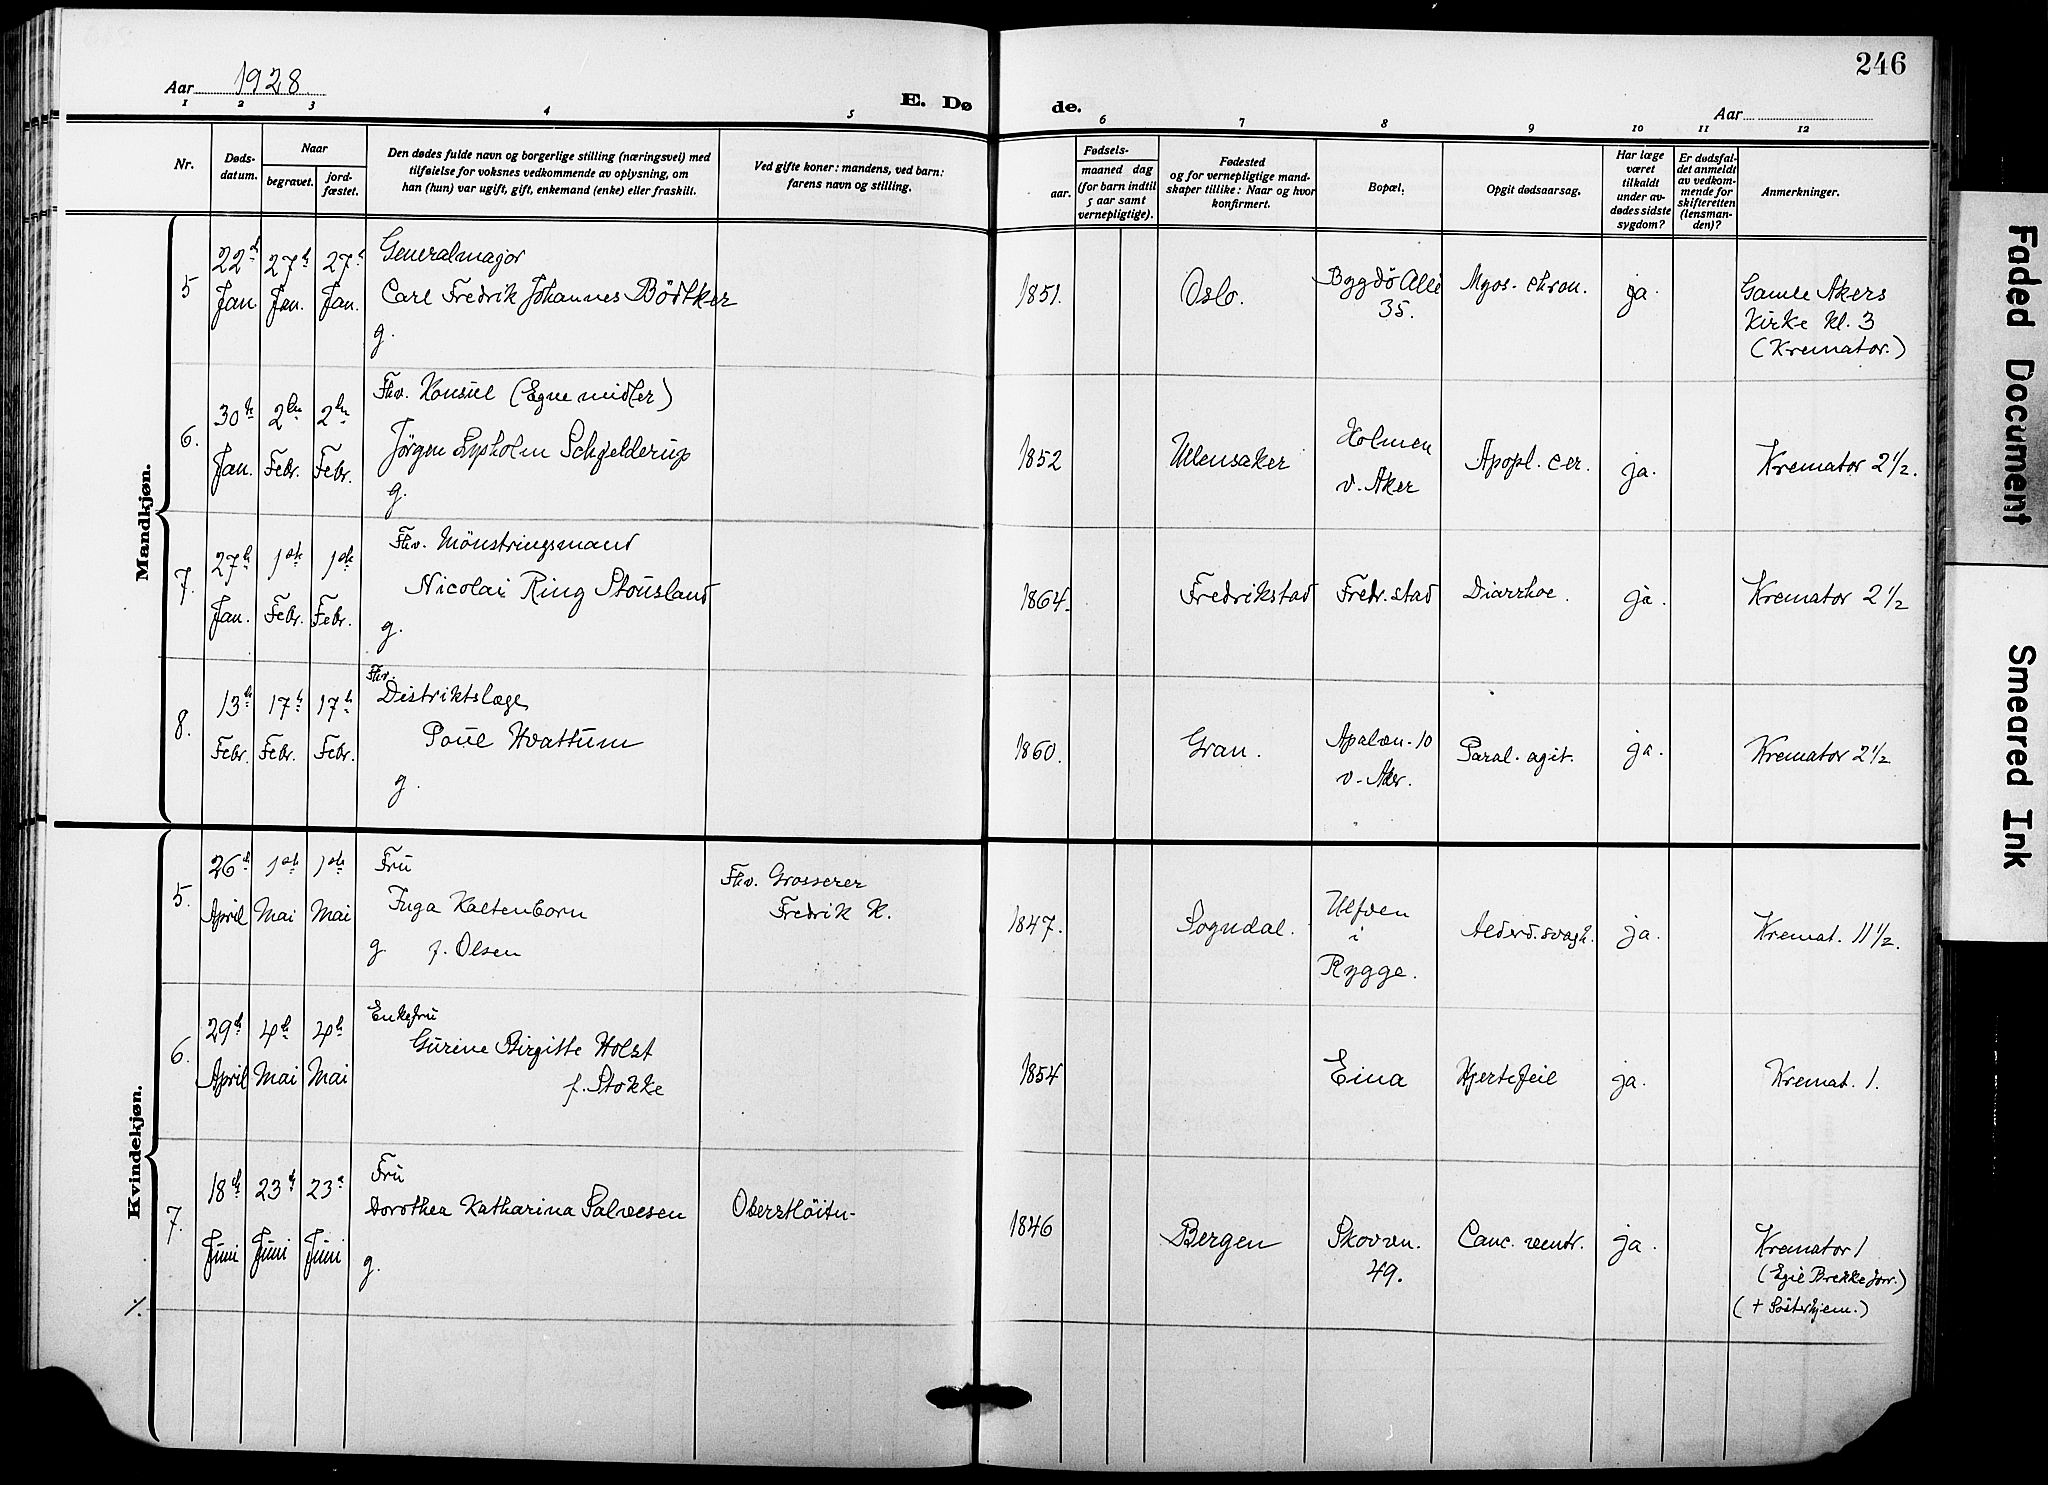 246
Aar 1928
E. Dø de.
Aar
1 2 3 4 5 6 7 8 9 10 11 12
Nr.
Døds-
datum.
Naar
begravet.
jord-
fæstet.
Den dødes fulde navn og borgerlige stilling (næringsvei) med
tilføielse for voksnes vedkommende av oplysning, om
han (hun) var ugift, gift, enkemand (enke) eller fraskilt.
Ved gifte koner: mandens, ved barn:
farens navn og stilling.
Fødsels-
aar.
maaned dag
(for barn indtil
5 aar samt
vernepligtige).
Fødested
og for vernepligtige mand-
skaper tillike: Naar og hvor
konfirmert.
Bopæl.
Opgit dødsaarsag.
Har læge
været
tilkaldt
under av-
dødes sidste
sygdom?
Er dødsfal-
det anmeldt
av vedkom-
mende for
skifteretten
(lensman-
den)?
Anmerkninger.
Mandkjøn.
5
22d Jan.
27d Jan.
27d Jan.
Generalmajor
Carl Fredrik Johannes Bödtker
g.
1851.
Oslo.
Bygdö Allé
35.
Myos. chron.
ja.
Gamle Akers
Kirke kl. 3
(Kremator.)
6.
30te Jan.
2den Febr.
2den Febr.
Fhv. Konsul (Egne midler)
Jörgen Lysholm Schjelderup
g.
1852
Ullensaker
Holmen
v. Aker
Apopl. cer.
ja.
Kremator 2½.
7.
27d Jan.
1ste Febr.
1ste Febr.
Fhv. Mönstringsmand
Nicolai Ring Stousland
g.
1864.
Fredrikstad
Fredr.stad
Diarrhoe.
ja.
Kremator 2½
8.
13de Febr.
17d Febr.
17d Febr.
Fhv.
Distriktslæge
Poul Hvattum
g.
1860.
Gran.
Apalvn. 10
v. Aker.
Paral. agit.
ja.
Kremator 2½
Kvindekjøn.
5.
26d April
1ste Mai
1ste Mai
Fru
Inga Kaltenborn
g. f. Olsen
Fhv. Grosserer
Fredrik K.
1847.
Sogndal.
Ulfven
i
Rygge.
Alderd.svagh.
ja.
Kremat. 11½.
6.
29d April
4d Mai
4d Mai
Enkefru
Gurine Birgitte Holst
f. Stokke
1854
Eina
Hjertefeil
ja.
Kremat. 1.
7.
18de Juni
23d Juni
23d Juni
Fru
Dorothea Katharina Salvesen
g.
Oberstlöitn.
1846
Bergen
Skovvn.
49.
Canc. ventr.
ja.
Kremator 1
(Egil Brekke forr.)
(+ Sösterhjem.)
Faded Document
Smeared Ink